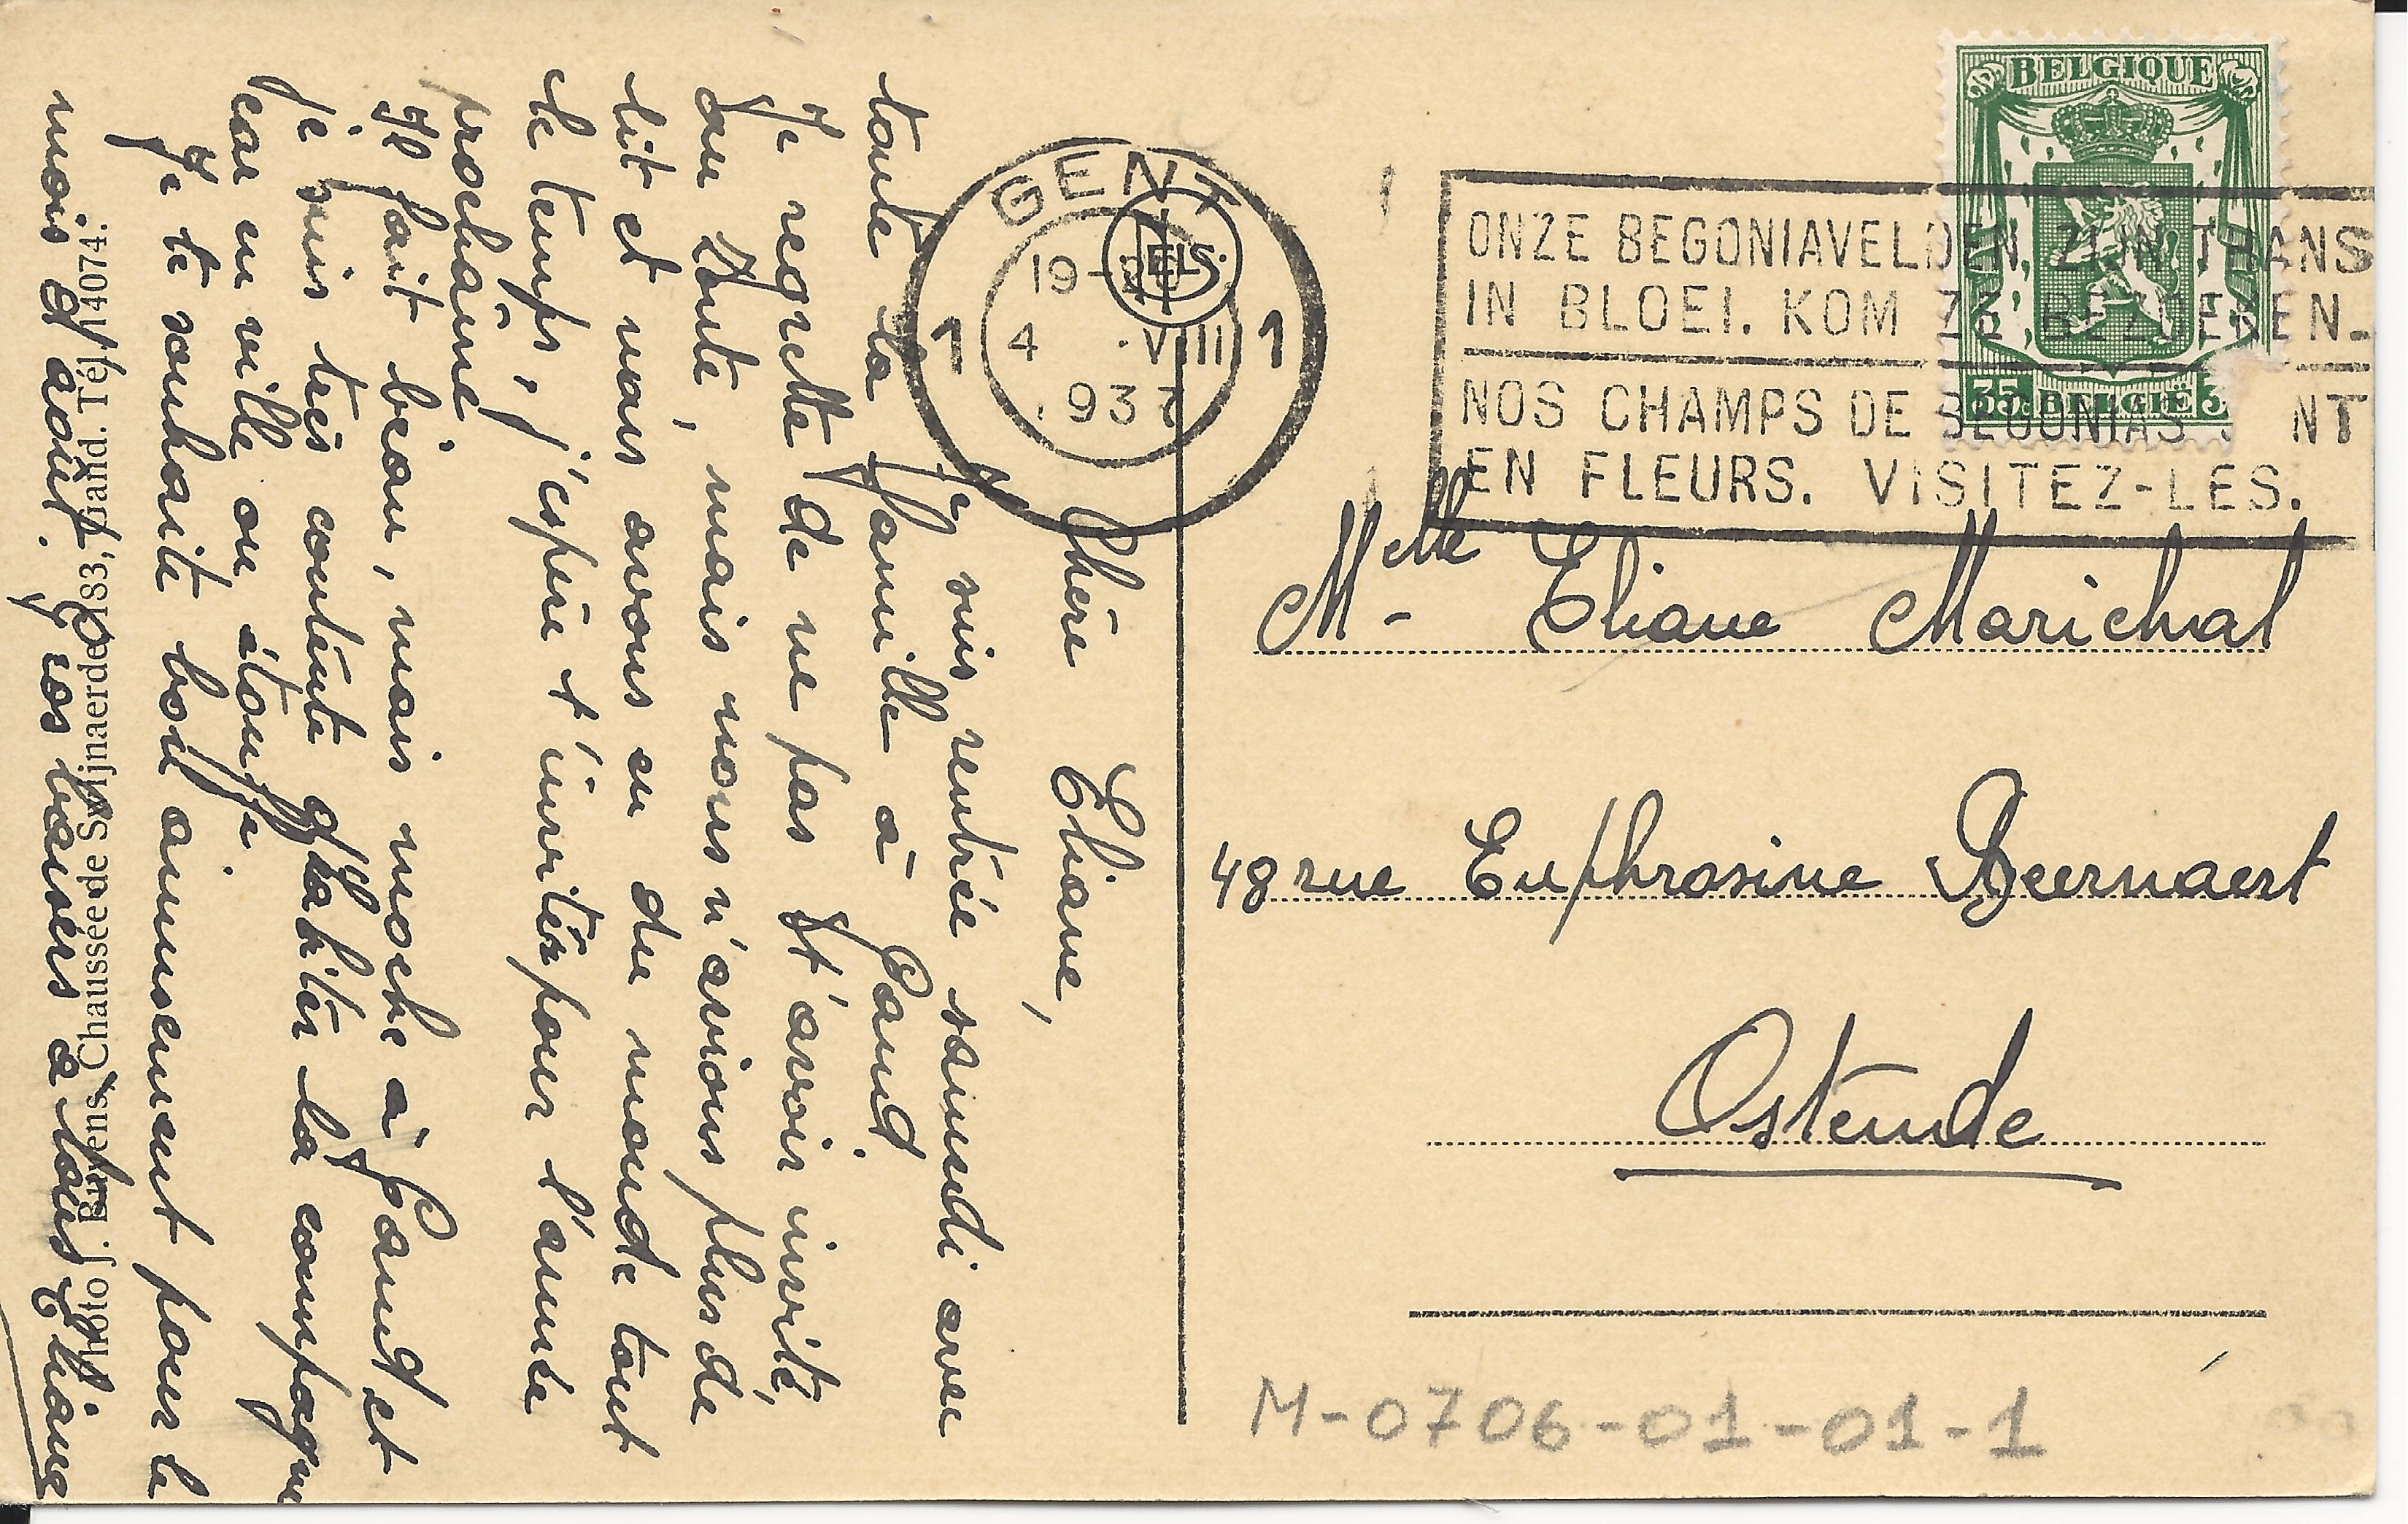 Chère Eliane,
Je suis rentrée samedi avec
toute la famille à Gand
Je regrette de ne pas t'avoir invité,
ou Zoute, mais nous n'avions plus de
lit et nous avons eu du monde tout
le temps, j'espère t'inviter pour l'année
prochaine
Il fait beau, mais moche à Gand et
je suis très contente d'habiter la campagne
car en ville on étouffe.
Je te souhaite bon amusement pour le
mois d'août. Gros baisers à tous Eliane
Photo J. Buyens, Chaussée de Swijnaerde 183, Gand. Tél. 14074.
GENT
1 1
19-
4 .VIII
.193
ONZE BEGONIAVELDEN ZIJN THANS
IN BLOEI. KOM ZE BEZOEKEN.
NOS CHAMPS DE BEGONIAS SONT
EN FLEURS. VISITEZ-LES.
BELGIQUE
35c BELGIË 3
Melle Eliane Marichal
48 rue Euphrosine Beernaert
Ostende
M-0706-01-01-1